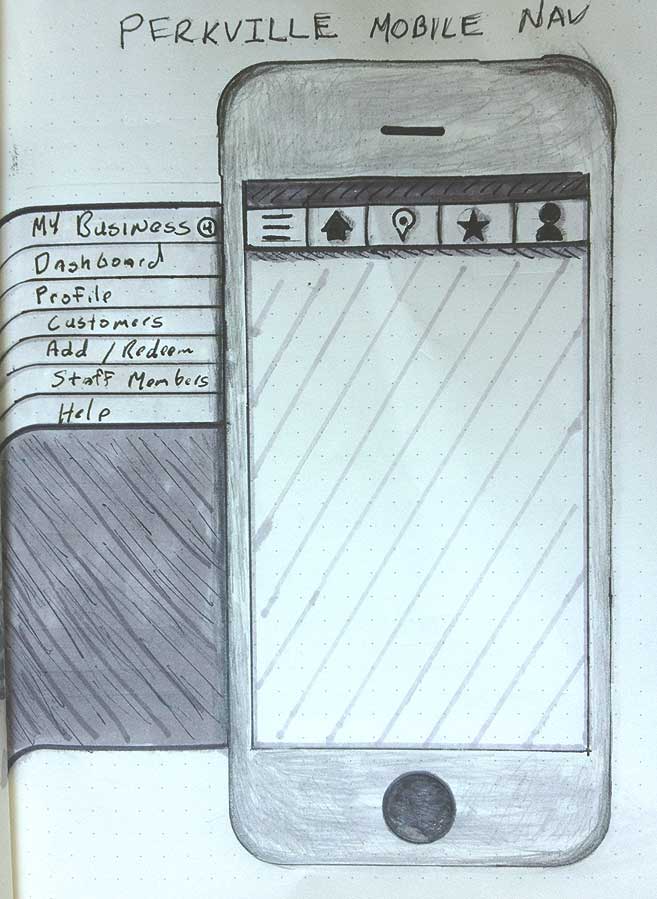 PERKVILLE MOBILE NAV
MY BUSINESS 4
Dashboard
Profile
Customers
Add / Redeem
Staff Members
Help